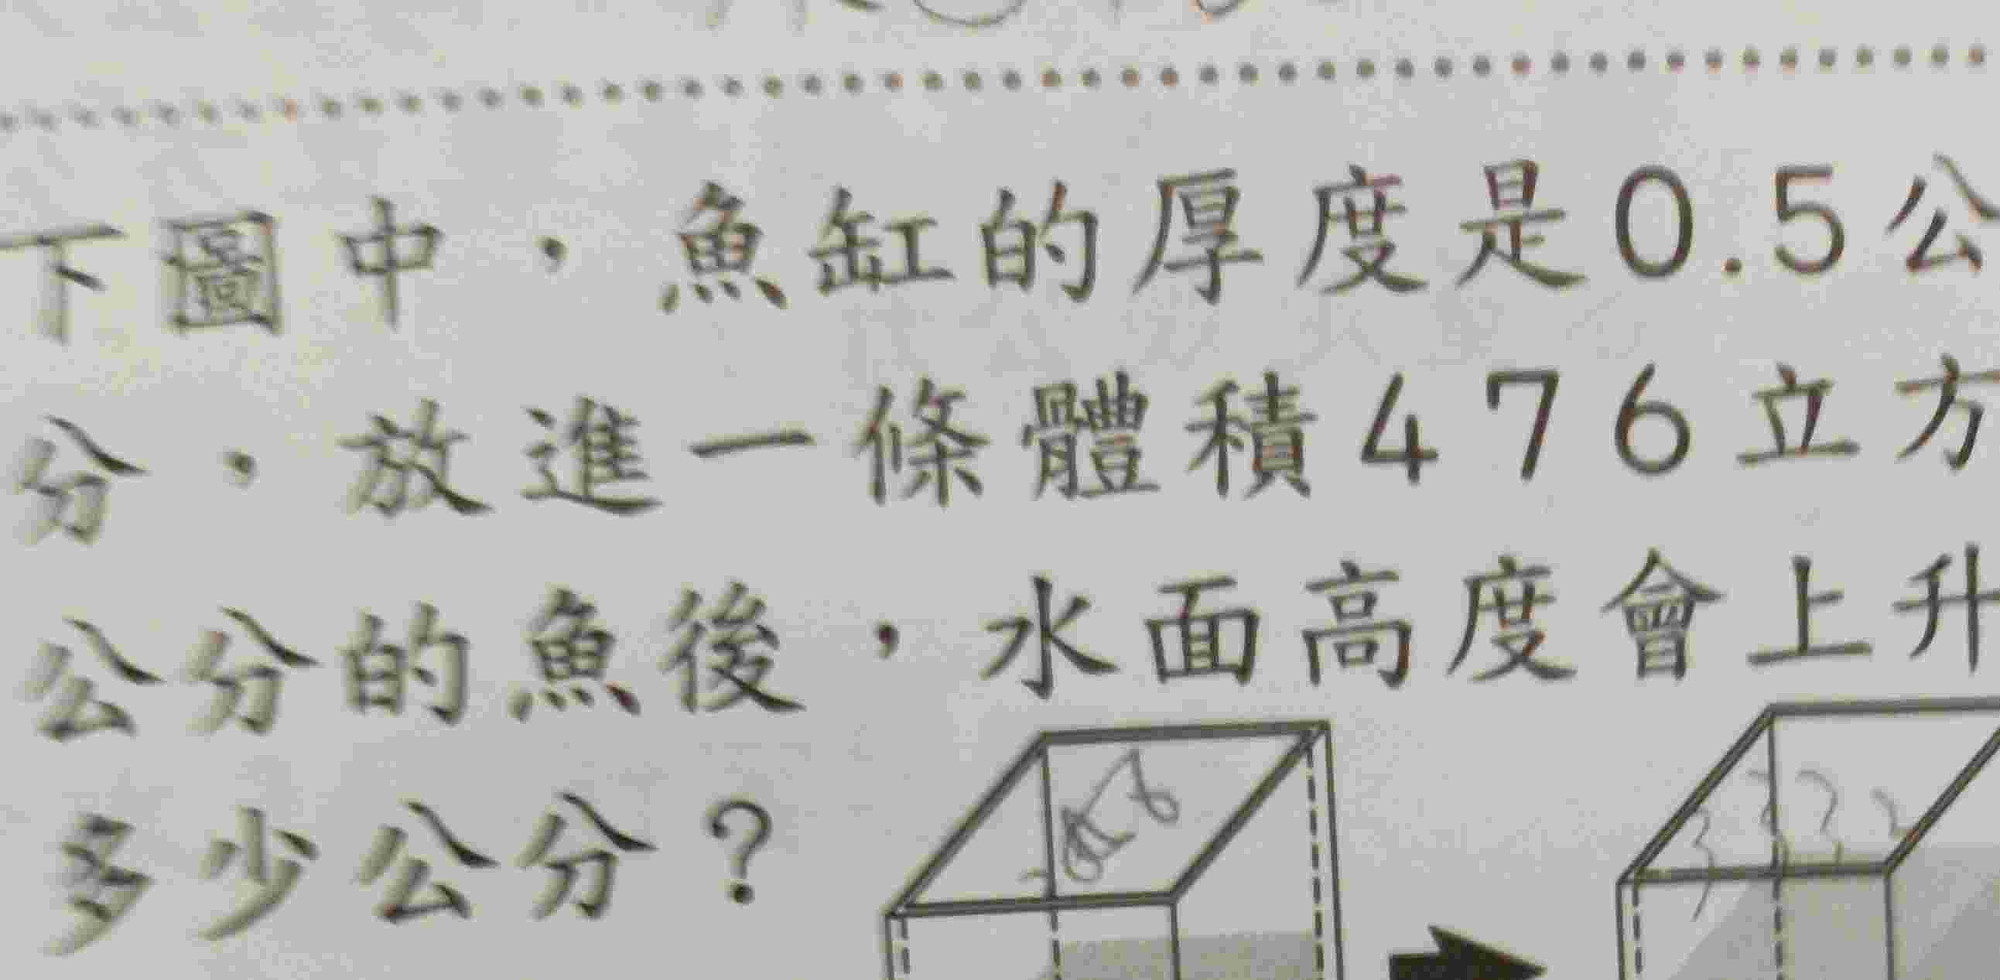 下圖中，魚缸的厚度是0.5公
分，放進一條體積476立方
公分的魚後，水面高度會上升
多少公分？